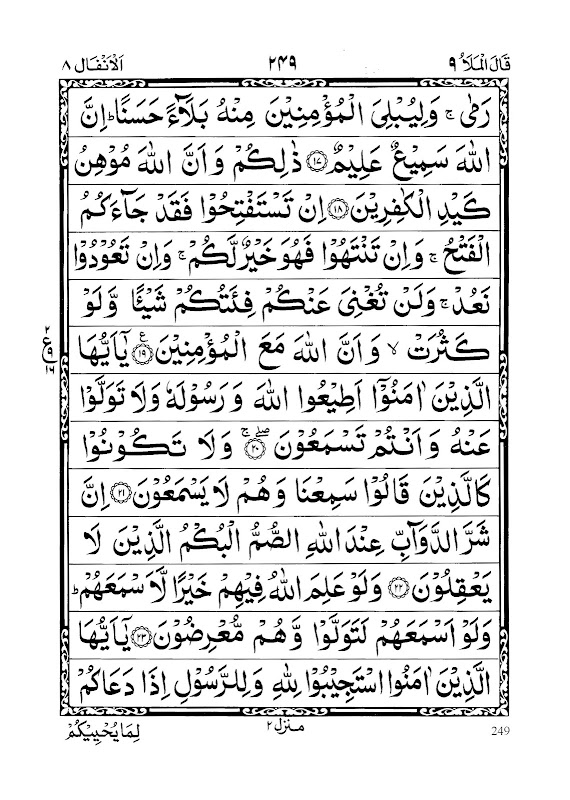 قَالَ الْمَلَاُ ۹ ۲۴۹ اَلْاَنْفَال ۸
رَمٰى ۚ وَلِيُبْلِىَ الْمُؤْمِنِيْنَ مِنْهُ بَلَآءً حَسَنًا ؕ اِنَّ
اللّٰهَ سَمِيْعٌ عَلِيْمٌ ﴿۱۷﴾ ذٰلِكُمْ وَ اَنَّ اللّٰهَ مُوْهِنُ
كَيْدِ الْكٰفِرِيْنَ ﴿۱۸﴾ اِنْ تَسْتَفْتِحُوْا فَقَدْ جَآءَكُمُ
الْفَتْحُ ۚ وَاِنْ تَنْتَهُوْا فَهُوَ خَيْرٌ لَّكُمْ ۚ وَاِنْ تَعُوْدُوْا
نَعُدْ ۚ وَلَنْ تُغْنِىَ عَنْكُمْ فِئَتُكُمْ شَيْئًا وَّلَوْ
كَثُرَتْ ۙ وَ اَنَّ اللّٰهَ مَعَ الْمُؤْمِنِيْنَ ﴿۱۹﴾ ع يٰۤاَيُّهَا
۲ ع ۹ ۱۶
الَّذِيْنَ اٰمَنُوْۤا اَطِيْعُوا اللّٰهَ وَ رَسُوْلَهٗ وَلَا تَوَلَّوْا
عَنْهُ وَ اَنْتُمْ تَسْمَعُوْنَ ﴿۲۰﴾ ۖۚ وَلَا تَكُوْنُوْا
كَالَّذِيْنَ قَالُوْا سَمِعْنَا وَ هُمْ لَا يَسْمَعُوْنَ ﴿۲۱﴾ اِنَّ
شَرَّ الدَّوَآبِّ عِنْدَ اللّٰهِ الصُّمُّ الْبُكْمُ الَّذِيْنَ لَا
يَعْقِلُوْنَ ﴿۲۲﴾ وَلَوْ عَلِمَ اللّٰهُ فِيْهِمْ خَيْرًا لَّاَسْمَعَهُمْ ؕ
وَلَوْ اَسْمَعَهُمْ لَتَوَلَّوْا وَّهُمْ مُّعْرِضُوْنَ ﴿۲۳﴾ يٰۤاَيُّهَا
الَّذِيْنَ اٰمَنُوا اسْتَجِيْبُوْا لِلّٰهِ وَ لِلرَّسُوْلِ اِذَا دَعَاكُمْ
منزل ۲
لِمَا يُحْيِيْكُمْ
249